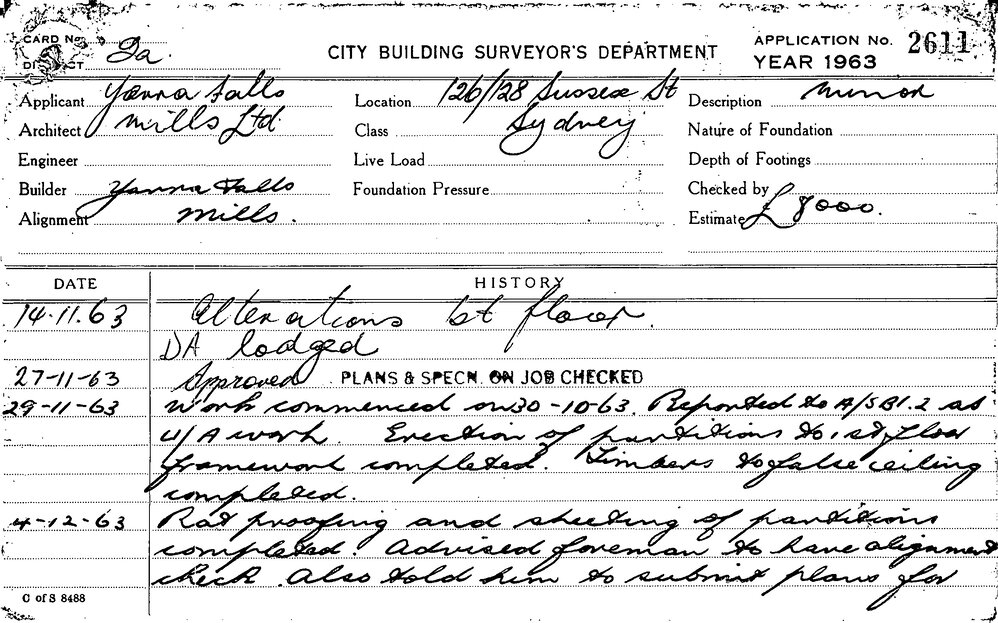 CARD No. 2a.
DISTRICT
CITY BUILDING SURVEYOR'S DEPARTMENT
APPLICATION No. 2611
YEAR 1963
Applicant Yarra Falls
Architect Mills Ltd.
Engineer
Builder Yarra Falls
Alignment Mills.
Location 126/128 Sussex St
Class Sydney
Live Load
Foundation Pressure
Description Minor
Nature of Foundation
Depth of Footings
Checked by
Estimate £ 8000.
DATE HISTORY
14.11.63 Alterations 1st floor.
DA lodged
27-11-63 Approved PLANS & SPECN. ON JOB CHECKED
29-11-63 Work commenced on 30-10-63. Reported to A/SBI.2 as
U/A work. Erection of partitions to 1st floor
framework completed. Timbers to false ceiling
completed.
4-12-63 Rat proofing and sheeting of partitions
completed. Advised foreman to have alignment
check. Also told him to submit plans for
C of S 8488